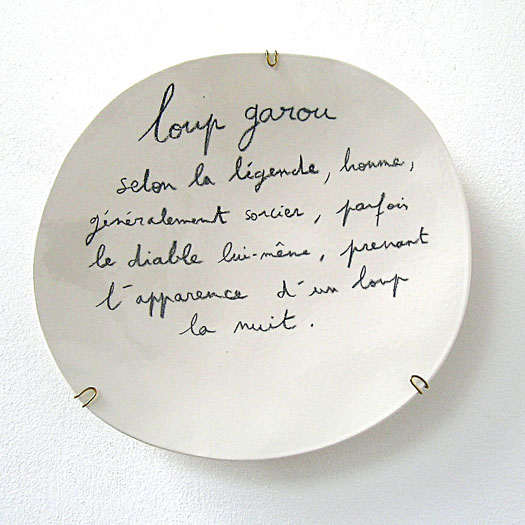 loup garou
selon la légende, homme,
généralement sorcier, parfois
le diable lui-même, prenant
l'apparence d'un loup
la nuit.